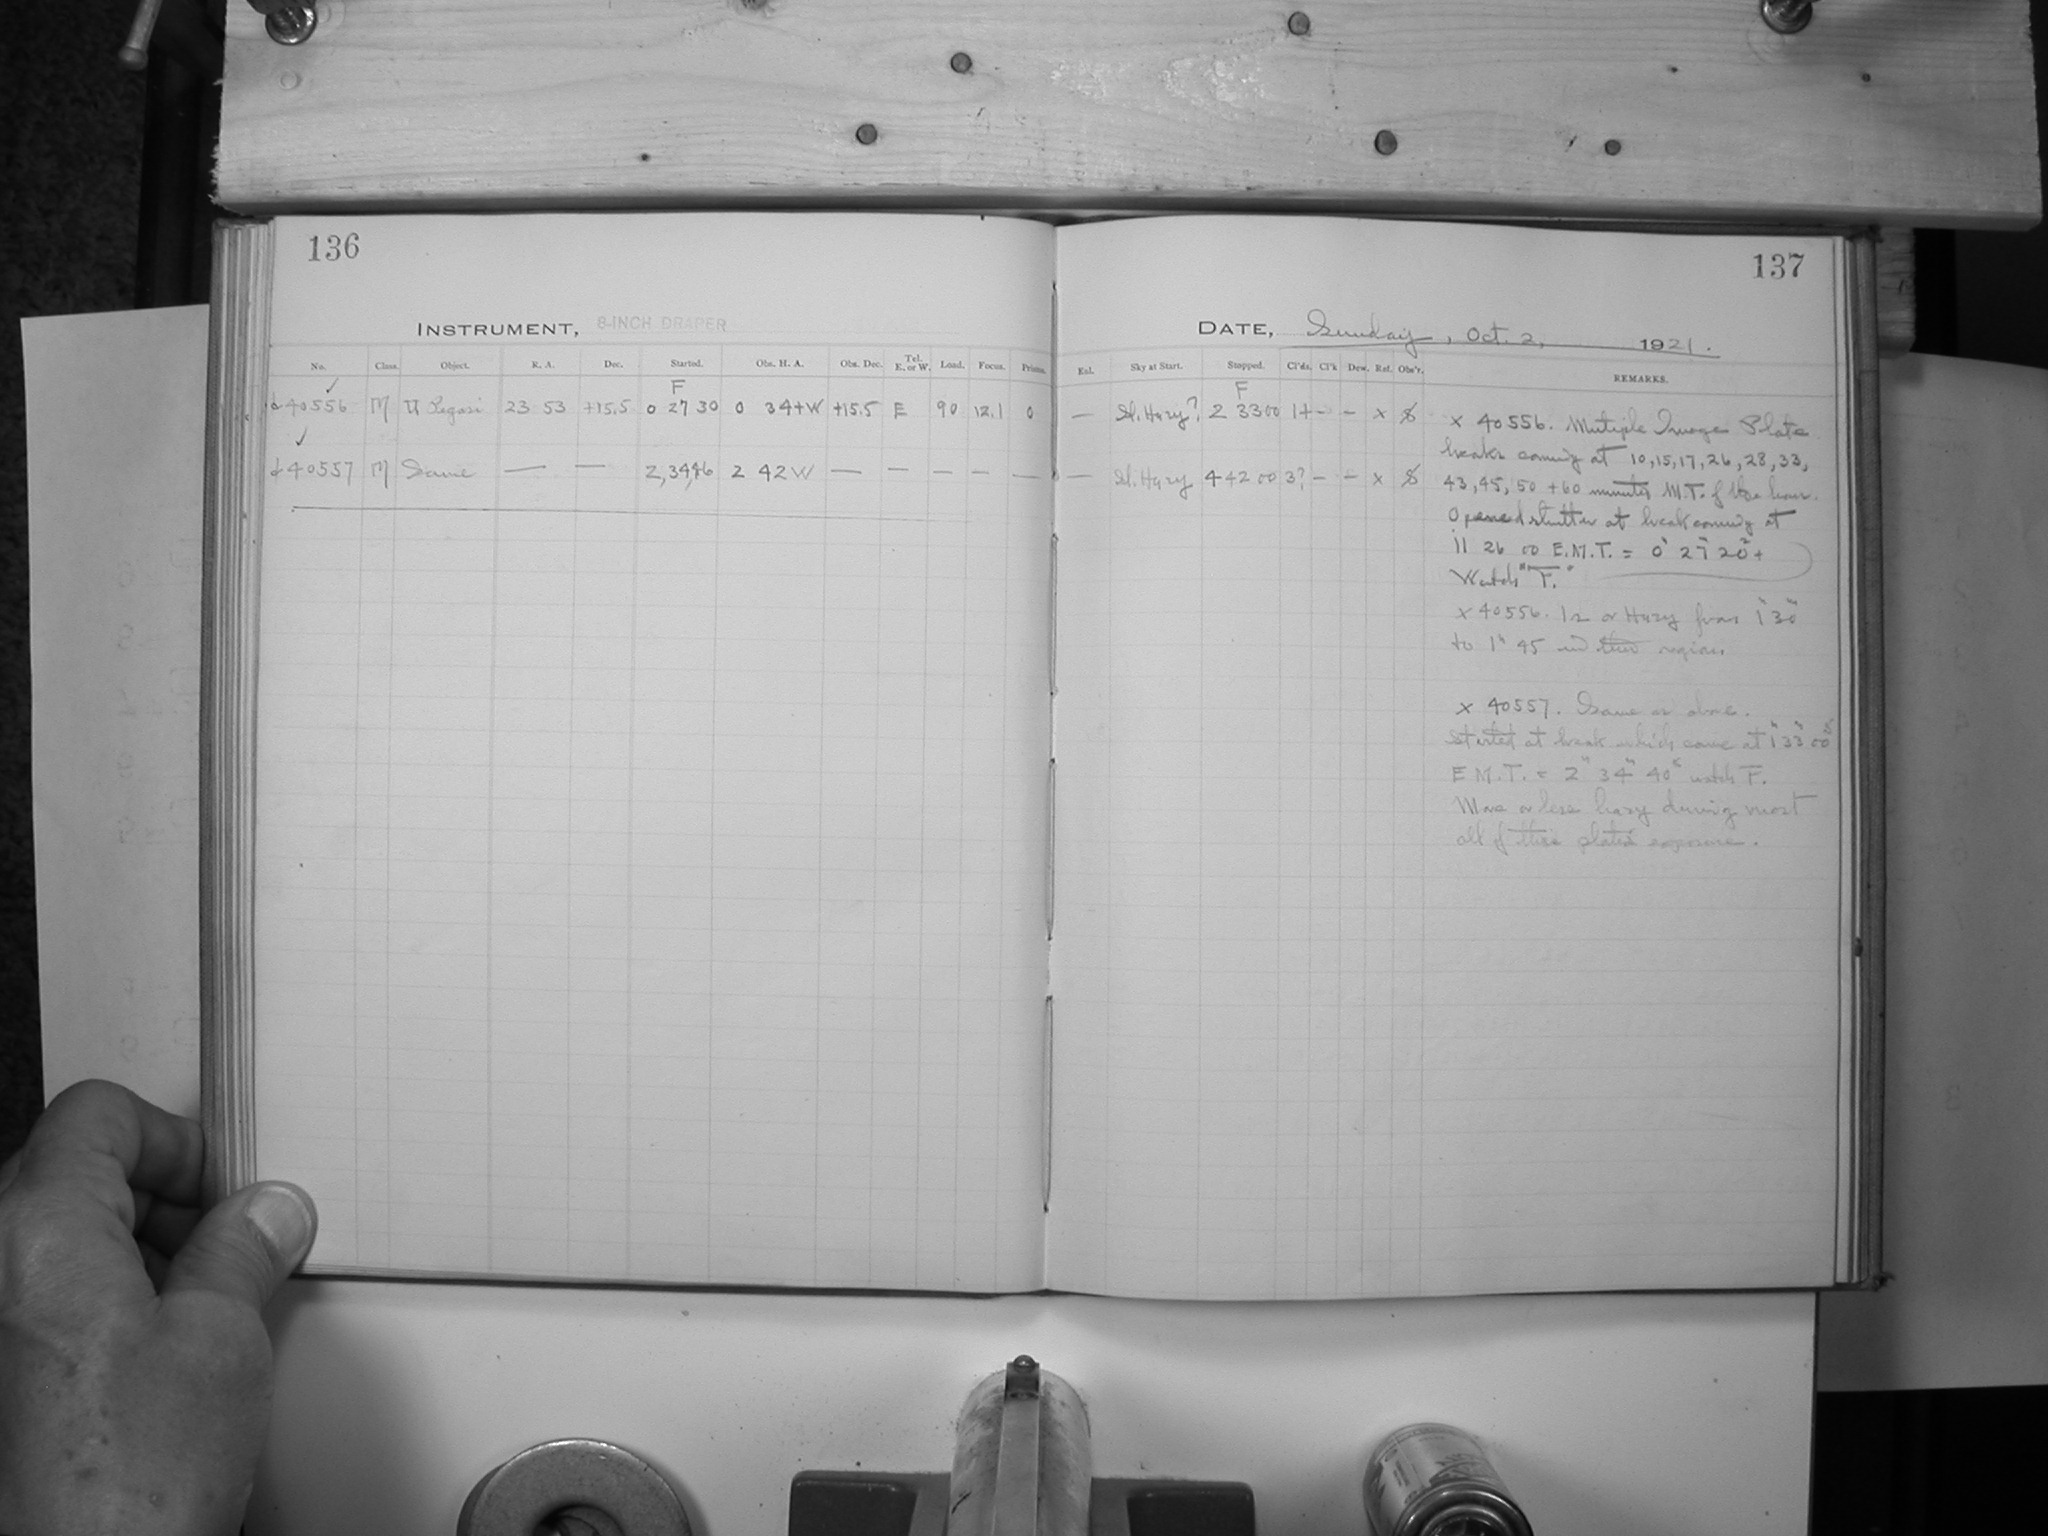 136
137
INSTRUMENT, 8-INCH DRAPER
DATE, Sunday, Oct. 2, 1921.
No. Class. Object. R. A. Dec. Started. Obs. H. A. Obs. Dec. Tel. E. or W. Load. Focus. Prisms.
Exl. Sky at Start. Stopped. Cl'ds. Cl'k Dew. Ref. Obs'r. REMARKS.
F
F
d 40556 M U Pegasi 23 53 +15.5 0 27 30 0 34+W +15.5 E 90 12.1 0
— Sl. Hazy? 2 33 00 1+ - - x
d 40557 M Same — — 2,34,46 2 42 W — — — — —
— Sl. Hazy 4 42 00 3? - - x
x 40556. Mutiple Image Plate
breaks coming at 10,15,17,26,28,33,
43,45,50 +60 minutes M.T. of the hour.
Opened shutter at break coming at
11 26 00 E.M.T. = 0 27 20+
Watch "F."
x 40556. or Hazy from 1 30
to 1h 45 in this region
x 40557. Same as above.
Started at break which came at 1h 33m 00s
E.M.T. = 2h 34m 40s watch F.
More or less hazy during most
all of this plates exposure.